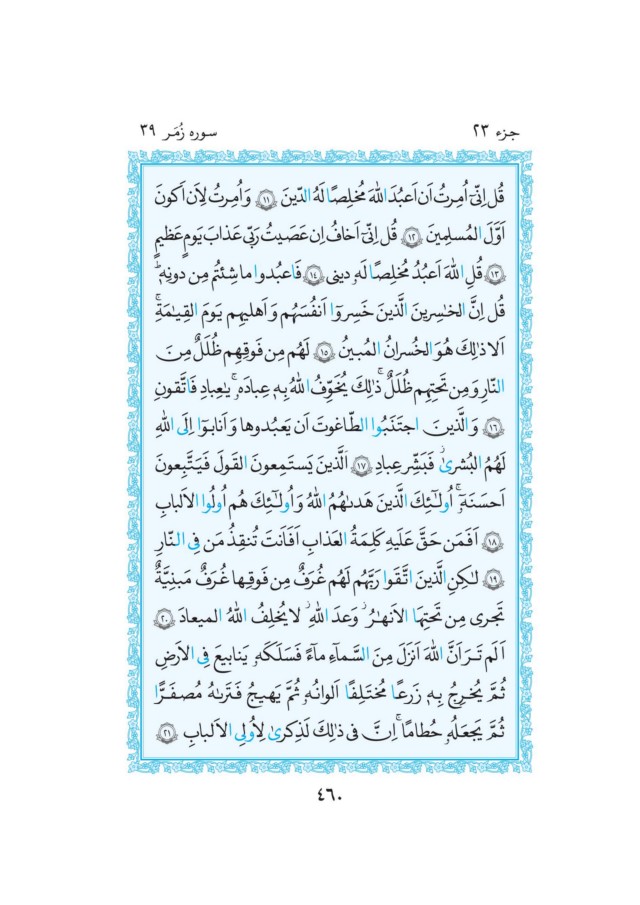 جزء ٢٣
سوره زُمَر ٣٩
قُل اِنّىٓ اُمِرتُ اَن اَعبُدَ اللهَ مُخلِصًا لَهُ الدّينَ ﴿١١﴾ وَاُمِرتُ لِاَن اَكونَ
اَوَّلَ المُسلِمينَ ﴿١٢﴾ قُل اِنّىٓ اَخافُ اِن عَصَيتُ رَبّى عَذابَ يَومٍ عَظيمٍ
﴿١٣﴾ قُلِ اللهَ اَعبُدُ مُخلِصًا لَه‍ُۥ دينى ﴿١٤﴾ فَاعبُدوا ما شِئتُم مِن دونِه‍ِۦۗ
قُل اِنَّ الخٰسِرينَ الَّذينَ خَسِروٓا اَنفُسَهُم وَ اَهليهِم يَومَ القِيٰمَةِۗ
اَلا ذٰلِكَ هُوَ الخُسرانُ المُبينُ ﴿١٥﴾ لَهُم مِن فَوقِهِم ظُلَلٌ مِنَ
النّارِ وَ مِن تَحتِهِم ظُلَلٌۚ ذٰلِكَ يُخَوِّفُ اللهُ بِه‍ِۦ عِبادَه‍ُۥۚ يٰعِبادِ فَاتَّقونِ
﴿١٦﴾ وَ الَّذينَ اجتَنَبُوا الطّاغوتَ اَن يَعبُدوها وَ اَنابوٓا اِلَى اللهِ
لَهُمُ البُشرىٰۚ فَبَشِّر عِبادِ ﴿١٧﴾ اَلَّذينَ يَستَمِعونَ القَولَ فَيَتَّبِعونَ
اَحسَنَه‍ُۥٓۚ اُولٰٓئِكَ الَّذينَ هَدىٰهُمُ اللهُ وَ اُولٰٓئِكَ هُم اُولُوا الاَلبابِ
﴿١٨﴾ اَفَمَن حَقَّ عَلَيهِ كَلِمَةُ العَذابِ اَفَاَنتَ تُنقِذُ مَن فِى النّارِ
﴿١٩﴾ لٰكِنِ الَّذينَ اتَّقَوا رَبَّهُم لَهُم غُرَفٌ مِن فَوقِها غُرَفٌ مَبنِيَّةٌ
تَجرى مِن تَحتِهَا الاَنهٰرُۖ وَعدَ اللهِۖ لا يُخلِفُ اللهُ الميعادَ ﴿٢٠﴾
اَلَم تَرَ اَنَّ اللهَ اَنزَلَ مِنَ السَّمآءِ مآءً فَسَلَكَه‍ُۥ يَنابيعَ فِى الاَرضِ
ثُمَّ يُخرِجُ بِه‍ِۦ زَرعًا مُختَلِفًا اَلوانُه‍ُۥ ثُمَّ يَهيجُ فَتَرىٰهُ مُصفَرًّا
ثُمَّ يَجعَلُه‍ُۥ حُطامًاۚ اِنَّ فى ذٰلِكَ لَذِكرىٰ لِاُولِى الاَلبابِ ﴿٢١﴾
٤٦٠